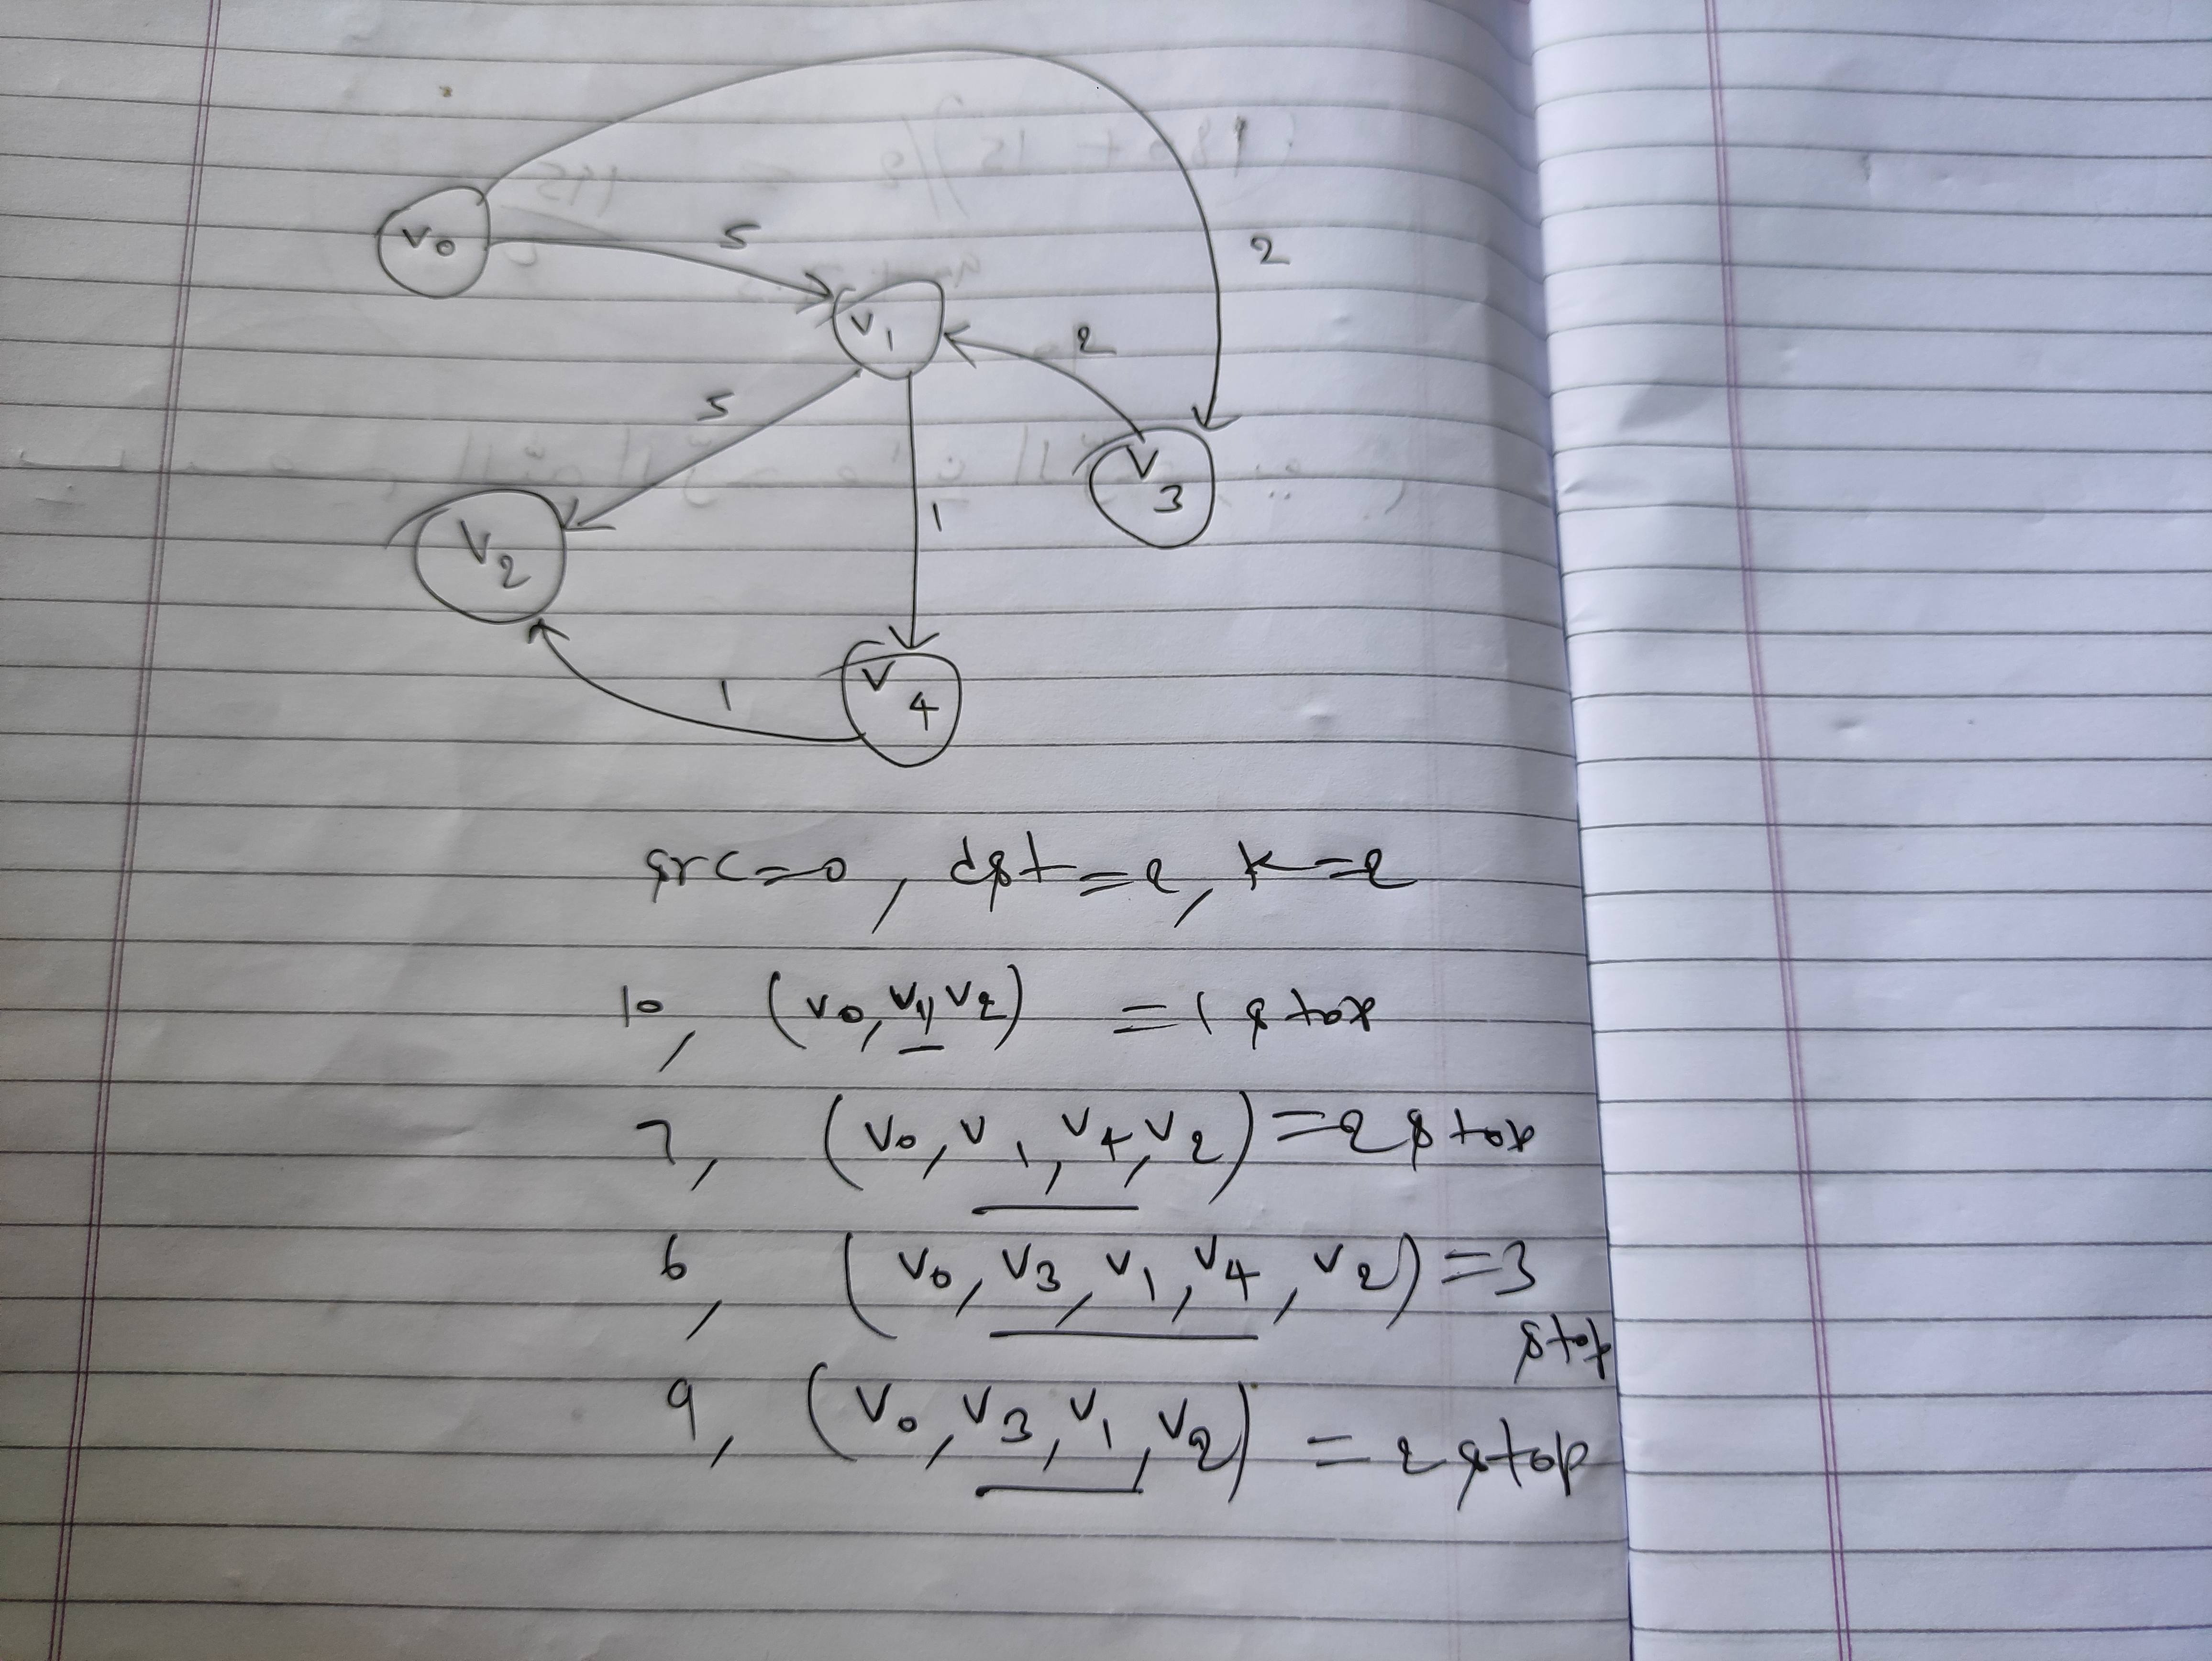 2
5
v0
v1
2
5
v3
1
v2
v4
1
src=0, dst=2, k=2
10, (v0, v1, v2) = 1 stop
7, (v0, v1, v4, v2) = 2 stop
6, (v0, v3, v1, v4, v2) = 3
stop
9, (v0, v3, v1, v2) = 2 stop